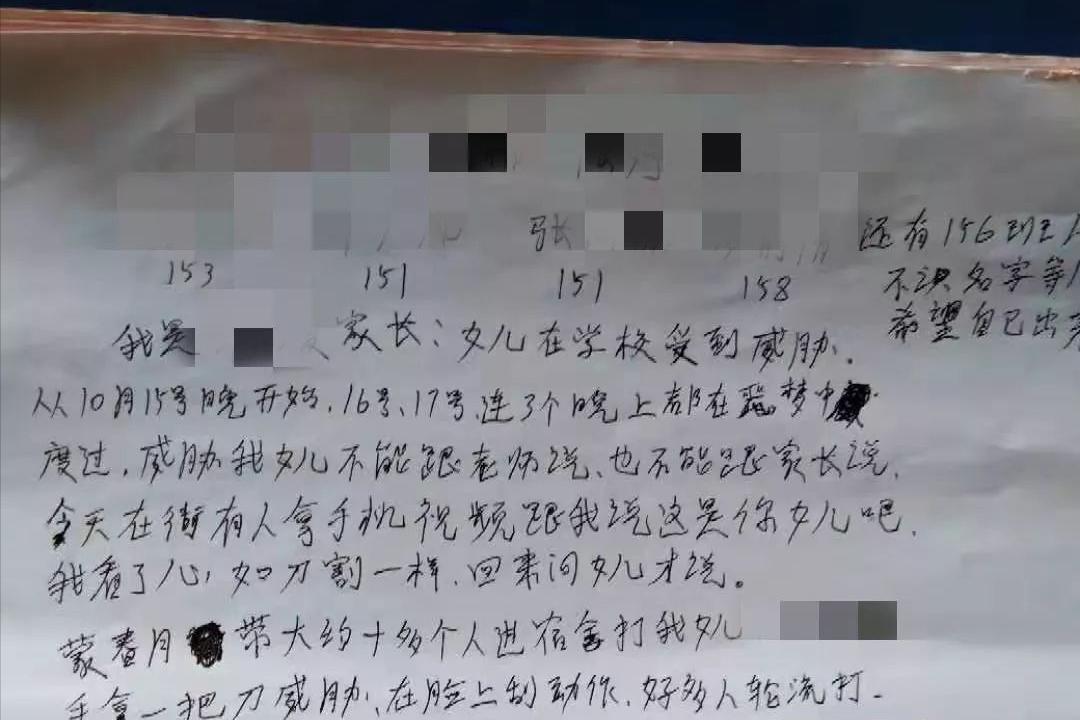 张
153 151 151 158
还有156班
不识名字等
希望自已出来
我是 家长：女儿在学校受到威胁.
从10月15号晚开始.16号、17号.连3个晚上都在恶梦中
度过，威胁我女儿不能跟老师说、也不能跟家长说.
今天在街有人拿手机视频跟我说这是你女儿吧.
我看了心，如刀割一样.回来问女儿才说。
蒙春月 带大约十多个人进宿舍打我女儿
手拿一把刀威胁、在脸上刮动作.好多人轮流打.